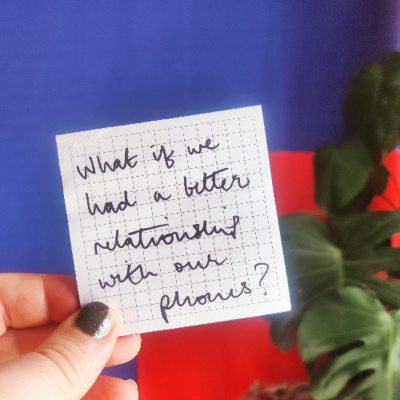 What if we
had a better
relationship
with our
phones?